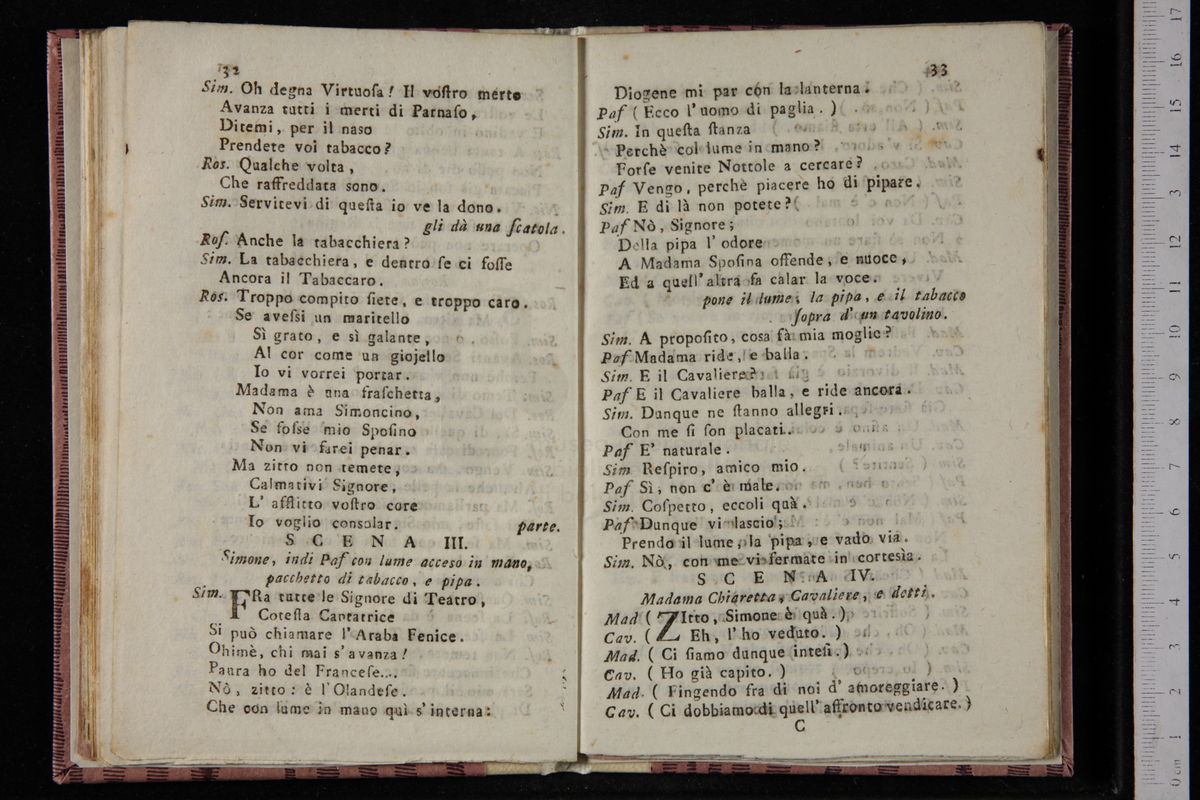 32
Sim. Oh degna Virtuoſa! Il voſtro merto
Avanza tutti i merti di Parnaſo,
Ditemi, per il naso
Prendete voi tabacco?
Ros. Qualche volta,
Che raffreddata sono.
Sim. Servitevi di queſta io ve la dono.
gli dà una ſcatola.
Roſ. Anche la tabacchiera?
Sim. La tabacchiera, e dentro ſe ci foſſe
Ancora il Tabaccaro.
Ros. Troppo compito ſiete, e troppo caro.
Se aveſsi un maritello
Sì grato, e sì galante,
Al cor come un giojello
Io vi vorrei portar.
Madama è una fraſchetta,
Non ama Simoncino,
Se foſse mio Spoſino
Non vi farei penar.
Ma zitto non temete,
Calmativi Signore,
L' afflitto voſtro core
Io voglio consolar. parte.
S C E N A III.
Simone, indi Paf con lume acceso in mano,
pacchetto di tabacco, e pipa.
Sim. FRa tutte le Signore di Teatro,
Coteſta Cantatrice
Si può chiamare l' Araba Fenice.
Ohimè, chi mai s' avanza!
Paura ho del Franceſe...
Nò, zitto: è l' Olandeſe.
Che con lume in mano quì s' interna:
33
Diogene mi par con la lanterna.
Paf ( Ecco l' uomo di paglia. )
Sim. In queſta ſtanza
Perchè col lume in mano?
Forſe venite Nottole a cercare?
Paf Vengo, perchè piacere ho di pipare.
Sim. E di là non potete?
Paf Nò, Signore;
Della pipa l' odore
A Madama Spoſina offende, e nuoce,
Ed a quell' altra fa calar la voce.
pone il lume, la pipa, e il tabacco
ſopra d' un tavolino.
Sim. A propoſito, cosa fà mia moglie?
Paf Madama ride, e balla.
Sim. E il Cavaliere?
Paf E il Cavaliere balla, e ride ancora.
Sim. Dunque ne ſtanno allegri.
Con me ſi ſon placati.
Paf E' naturale.
Sim Reſpiro, amico mio.
Paf Sì, non c' è male.
Sim. Coſpetto, eccoli quà.
Paf Dunque vi laſcio;
Prendo il lume, la pipa, e vado via.
Sim. Nò, con me vi fermate in cortesìa.
S C E N A IV.
Madama Chiaretta, Cavaliere, e detti.
Mad ( ZItto, Simone è quà. )
Cav. ( Eh, l' ho veduto. )
Mad. ( Ci ſiamo dunque inteſi. )
Cav. ( Ho già capito. )
Mad. ( Fingendo fra di noi d' amoreggiare. )
Cav. ( Ci dobbiamo di quell' affronto vendicare. )
C
0 cm 1 2 3 4 5 6 7 8 9 10 11 12 13 14 15 16 17